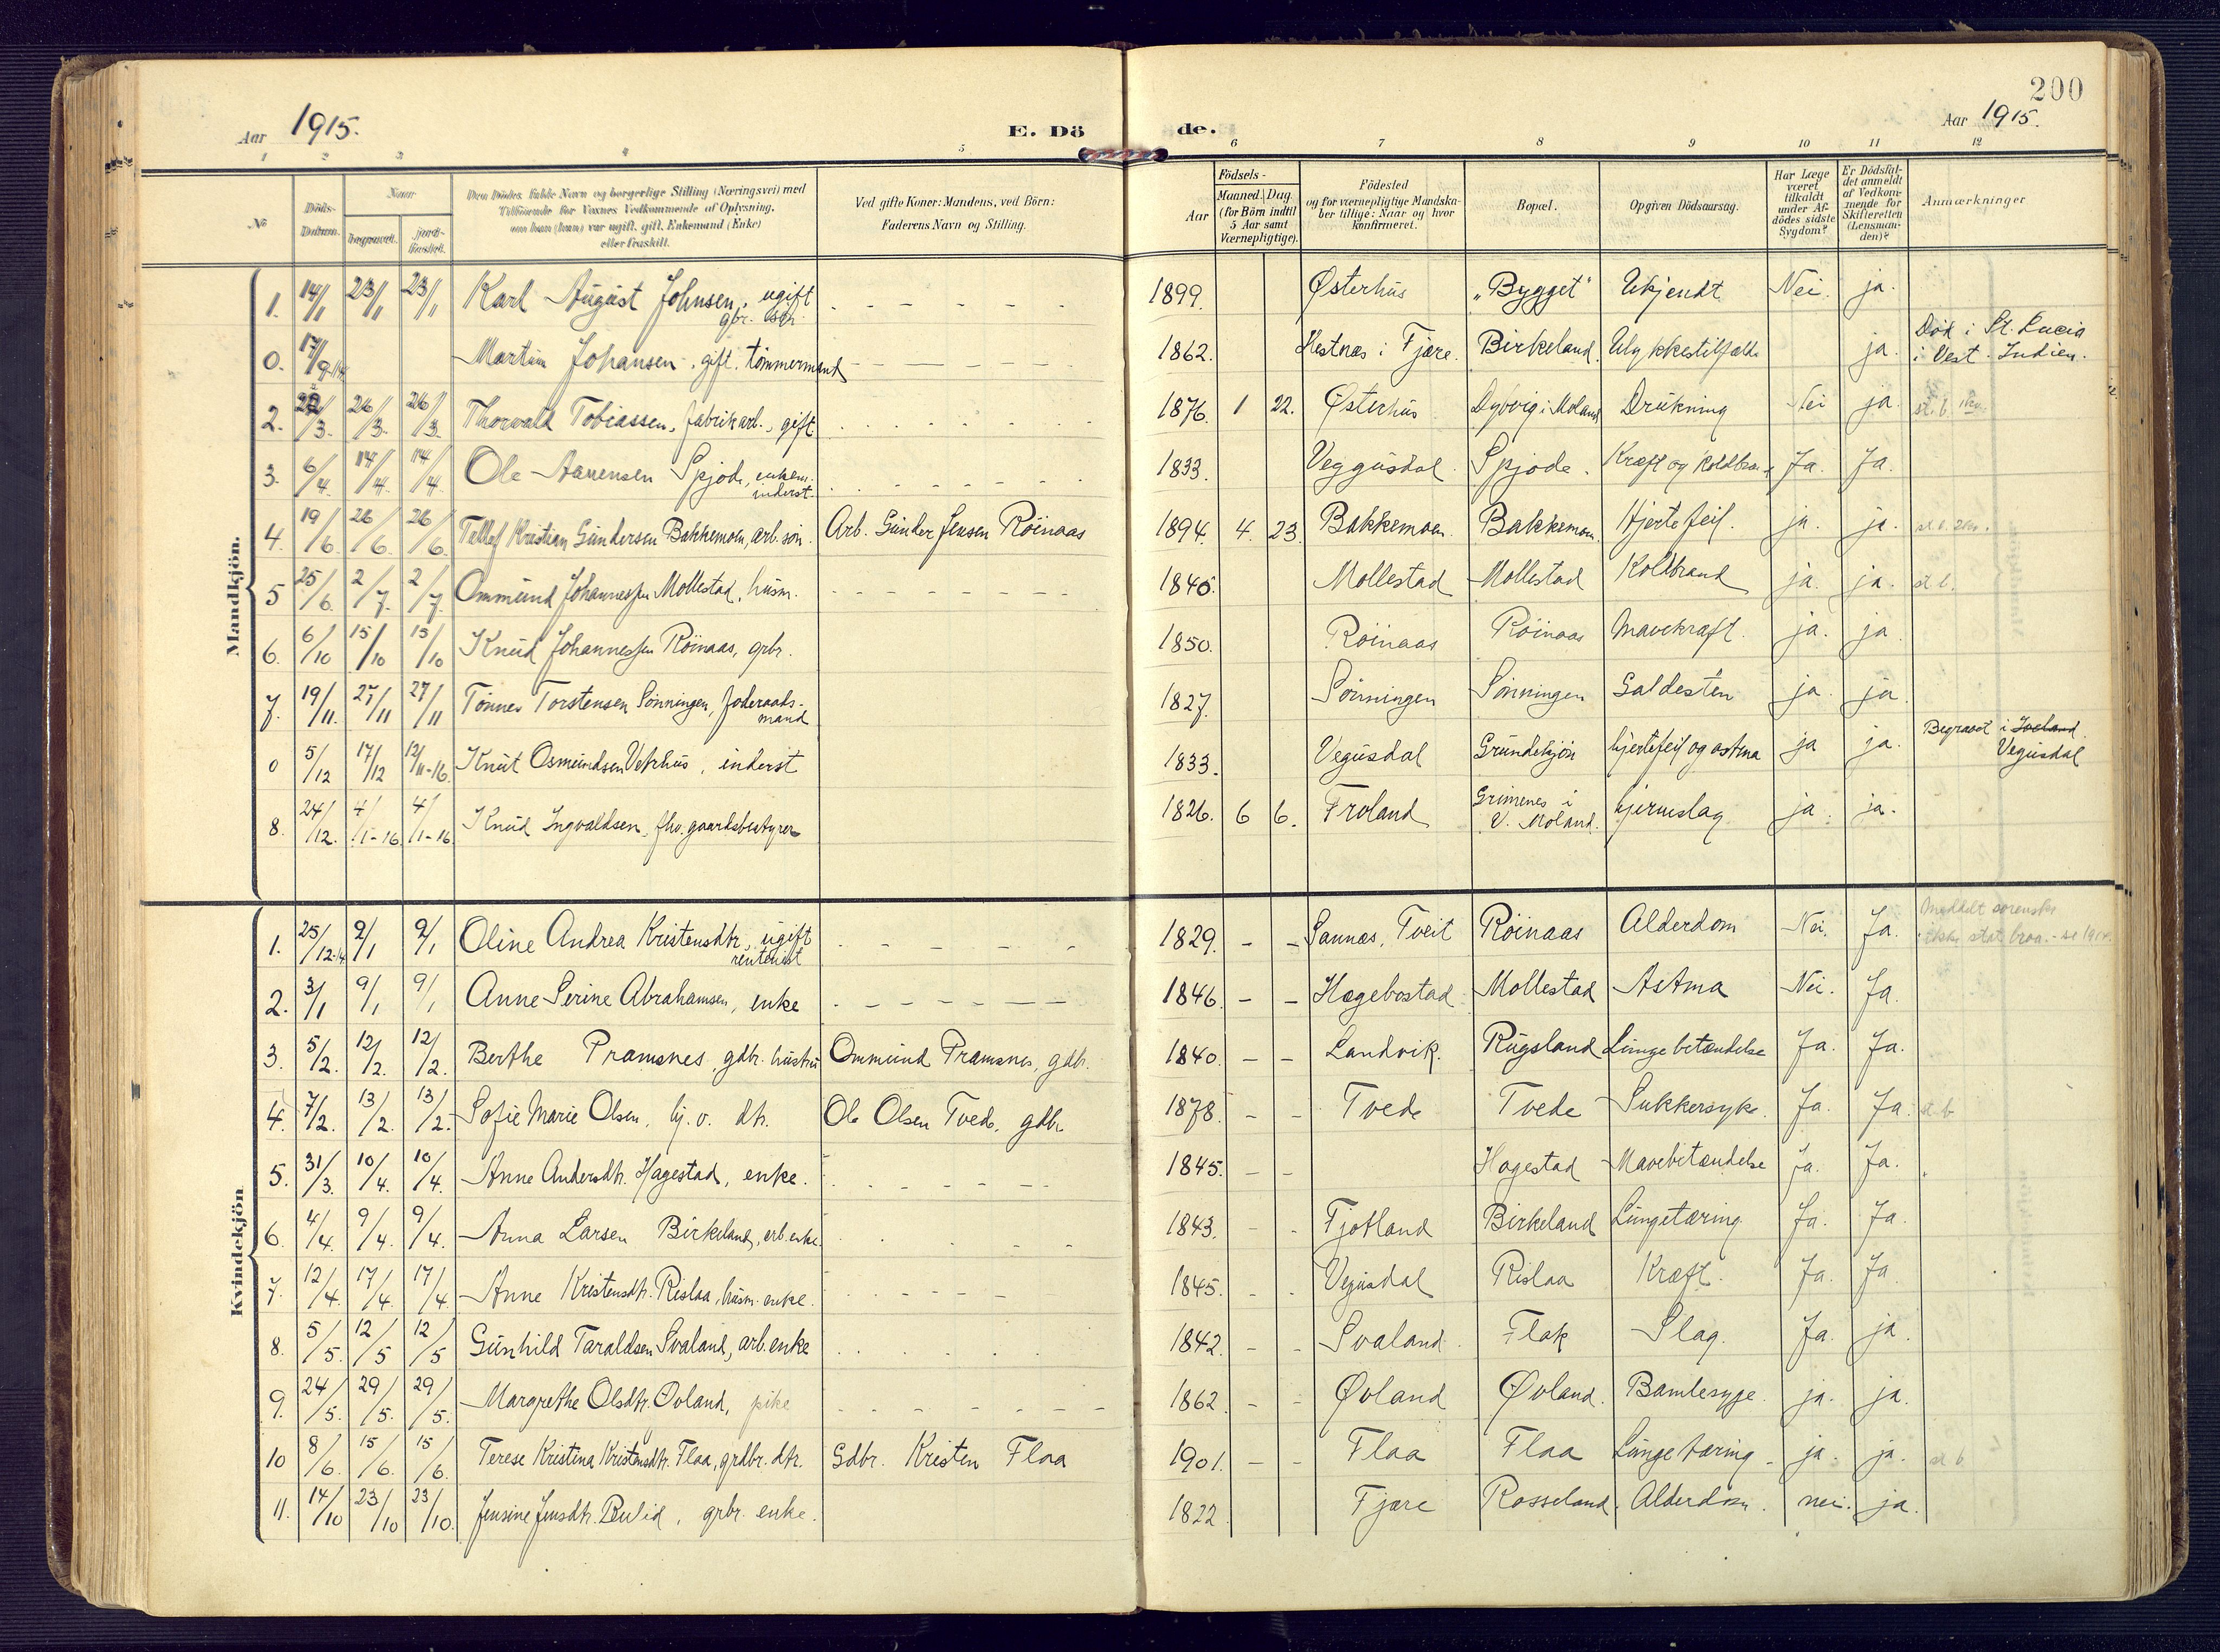 200
Aar 1915. E. Dö de. Aar 1915.
1 2 3 4 5 6 7 8 9 10 11 12
№ Döds-Datum. Naar begravet. jordfæstet. Den Dødes fulde Navn og borgerlige Stilling (Næringsvei) med Tilföiende for Voxnes Vedkommende af Oplysning, om ham (hun) var ugift, gift, Enkemand (Enke) eller fraskilt. Ved gifte Koner: Mandens, ved Börn: Faderens Navn og Stilling. Födsels- Aar Maaned. Dag. (for Börn indtil 5 Aar samt Værnepligtige). Födested og for værnepligtige Mandskaber tillige: Naar og hvor konfirmeret. Bopæl. Opgiven Dödsaarsag. Har Læge været tilkaldt under Afdödes sidste Sygdom? Er Dödsfaldet anmeldt af Vedkommende for Skifteretten (Lensmanden)? Anmærkninger
Mandkjön.
1. 14/1 23/1 23/1 Karl August Johnsen, ugift gbr. sön 1899. Østerhus "Bygget" Ukjendt Nei. ja.
0. 17/9-14 Martin Johansen, gift, tömmermand 1862. Hestnes i Fjære. Birkeland Ulykkestilfælde ja. Död i St. Lucia i Vest. Indien.
2. 22/3. 26/3. 26/3. Thorvald Tobiassen, fabrikarb., gift 1876. 1 22. Østerhus Dybvig i Moland Drukning Nei ja
3. 6/4. 14/4. 14/4. Ole Aanensen Spjode, enkem. inderst. 1833. Veggusdal Spjode. Kræft og Koldbrand Ja. Ja.
4. 19/6. 26/6. 26/6. Tellef Kristian Gundersen Bakkemoen, arb. sön. Arb. Gunder Jensen Röinaas 1894. 4. 23. Bakkemoen. Bakkemoen. Hjertefeil. ja. ja.
5 25/6. 2/7. 2/7. Ommund Johannessen Mollestad, husm. 1840. Mollestad Mollestad Koldbrand ja. ja.
6. 6/10 15/10 15/10 Knud Johannessen Röinaas, grbr. 1850. Röinaas Röinaas Mavekræft. ja. ja
7. 19/11. 27/11 27/11 Tönnes Torstensen Sönningen, föderaadsmand 1827. Sönningen Sönningen Galdesten ja. ja.
0 5/12 17/12 12/11-16. Knut Osmundsen Vehus, inderst 1833. Vegusdal Grundekjön hjertefeil og astma ja ja. Begravet i Iveland Vegusdal
8. 24/12. 4/1-16. 4/1-16 Knud Ingvaldsen, fhv. gaardsbestyrer 1826. 6 6. Froland Grimenes i V. Moland. hjerneslag ja. ja.
Kvindekjön
1. 25/12-14 9/1 9/1 Oline Andrea Kristensdtr, ugift rentenist 1829. Sannæs, Tveit Röinaas Alderdom Nei. Ja.
2. 3/1 9/1 9/1 Anne Serine Abrahamsen, enke 1846. Hægebostad Mollestad Astma Nei. Ja.
3. 5/2. 12/2. 12/2. Berthe Pramsnes, gdbr. hustru Ommund Pramsnes, gdbr. 1840. Landvik. Rugsland Lungebetændelse Ja. Ja.
4. 7/2. 13/2. 13/2. Sofie Marie Olsen, hj. v. dtr. Ole Olsen Tvede, gdbr 1878. Tvede Tvede Sukkersyke. Ja. Ja. st. b
5. 31/3. 10/4. 10/4. Anne Andersdtr. Hagestad, enke. 1845. Hagestad Mavebetændelse Ja. Ja.
6. 4/4. 9/4. 9/4. Anna Larsen Birkeland, arb. enke. 1843. Fjotland Birkeland Lungetæring Ja. Ja.
7. 12/4. 17/4. 17/4. Anne Kristensdtr. Rislaa, husm. enke. 1845. Vegusdal Rislaa Kræft. Ja. Ja
8. 5/5. 12/5 12/5 Gunhild Taraldsen Svaland, arb. enke 1842. Svaland Flak Slag. Ja. ja.
9. 24/5. 29/5. 29/5. Margrethe Olsdtr. Øvland, pike 1862 Øvland Øvland. Bamlesyge. ja. ja.
10 8/6. 15/6. 15/6. Terese Kristina Kristensdtr. Flaa, grdbr. dtr. Gdbr. Kristen Flaa 1901. Flaa Flaa Lungetæring ja. ja. st b
11. 14/10 23/10 23/10. Jensine Jensdtr. Bulid, grbr. enke. 1822 Fjære Rosseland. Alderdom. nei. ja.